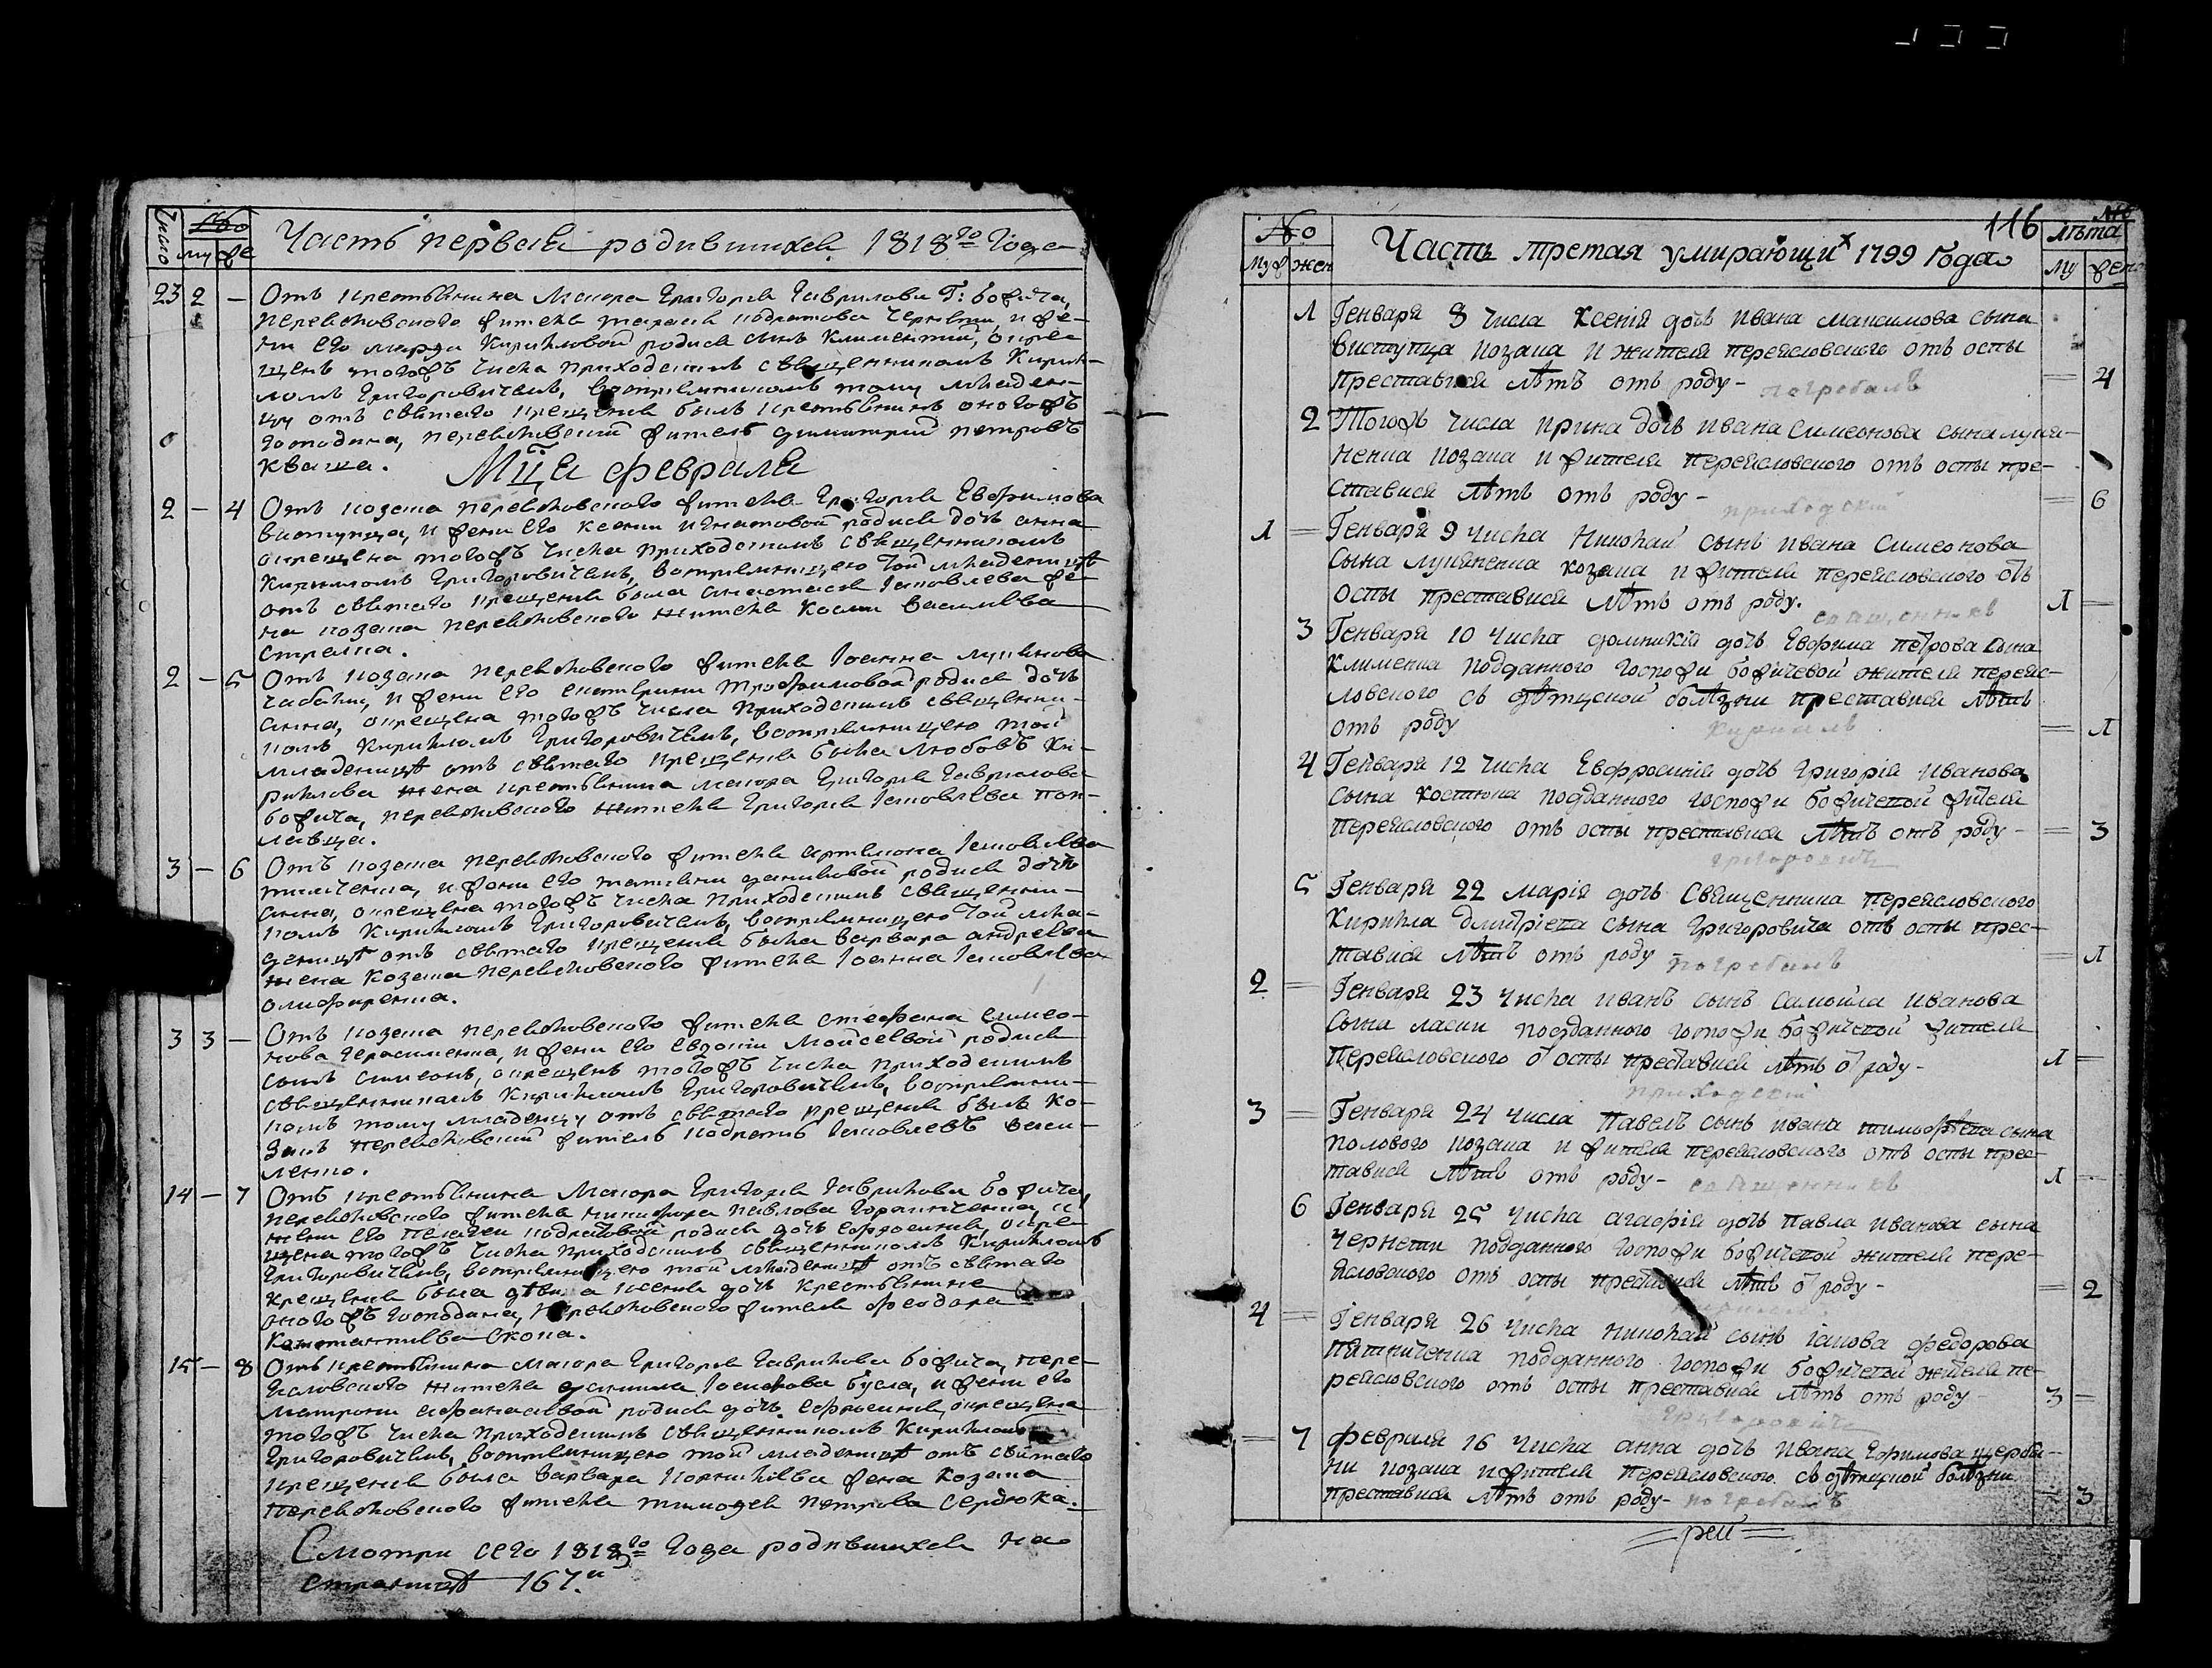 Число
№
му
же
Часть первая родившихся 1818го Года
23 2 — Отъ крестьянина Маиора Григорія Гаврилова Г: Божича,
переясловского жителя тараси кодратова Чернеги, и же-
ни его марфи Кириловой родися сынъ Климентій, окре
щенъ тогожъ числа приходскимъ священникомъ Кирил-
ломъ Григоровичемъ, восприемникомъ тому младен-
цу отъ святаго крещенія былъ крестьянинъ оногожъ
Господина, переясловский житель димитрій петровъ
Кваша.
Мца февраля
2 — 4 Отъ козака переясловского жителя Григорія Евфимова
виступца, и жени его ксении игнатовой родися дочь анна
окрещена тогожъ числа приходскимъ священникомъ
Кириломъ Григоровичемъ, восприемницею той младеницѣ
отъ святаго крещенія была анастасія Іаковлева же
на козака переясловского жителя Косми Василіева
стрелца.
2 — 5 Отъ козака переясловского жителя Іоанна лукянова
чабани, и жени его екатерини трофимовой родися дочь
анна, окрещена тогожъ числа приходскимъ священни-
комъ Кириломъ Григоровичемъ, восприемницею той
младеницѣ отъ святаго крещенія была Любовъ Ки-
рилова жена крестьянина маиора Григорія Гаврилова
божича, переясловского жителя Григорія Іаковлева пол-
лавца.
3 — 6 Отъ козака переясловского жителя артемона Іаковлева
тимченка, и жени его татияни даниловой родися дочь
анна, окрещена тогожъ числа приходскимъ священни-
комъ Кириломъ Григоровичемъ, восприемницею той мла-
деницѣ отъ святаго крещенія была варвара андреева
жена козака переясловского жителя Іоанна Іаковлева
олифиренка.
3 3 — Отъ козака переясловского жителя стефана симео-
нова Герасименка, и жени его Евдокіи Мойсеевой родися
сынъ симеонъ, окрещенъ тогожъ числа приходскимъ
священникомъ Кириломъ Григоровичемъ, восприемни-
комъ тому младенцу отъ святаго крещенія былъ ко-
закъ переясловский житель кодратъ Іаковлевъ васи-
ленко.
14 — 7 Отъ крестьянина Маиора Григорія Гаврилова божича,
переясловского жителя никифора павлова
жени его пелагеи кодратовой родися дочь ефросинія, окре-
щена тогожъ числа приходскимъ священникомъ Кириломъ
Григоровичемъ, восприемницею той младеницѣ отъ святаго
крещенія была ксенія дочь крестьянине
оногожъ господина, переясловского жителя феодора
Константиева Скопа.
15 — 8 Отъ крестьянина маиора Григорія Гаврилова божича, пере-
ясловского жителя даниила Іосифова бусла, и жени его
матрони афанасіевой родися дочь ефросинія, окрещена
тогожъ числа приходскимъ священникомъ Кириломъ
Григоровичемъ, восприемницею той младеницѣ отъ святаго
крещенія была варвара корниліева жена козака
переясловского жителя тимофея петрова сердюка.
Смотри сего 1818го Года родившихся на
страницѣ 167й
116
№
Муж жен
Часть третая умирающих 1799 Года
Лѣта
Му жен
1 Генваря 8 числа Ксенія дочь ивана максимова сына
виступца козака и жителя переясловского отъ оспы
преставися лѣтъ отъ роду - погребалъ = 4
2 Тогожъ числа ирина дочь ивана симеонова сына лукя-
ненка козака и жителя переясловского отъ оспы пре-
ставися лѣтъ отъ роду - = 6
приходскій
1 = Генваря 9 числа Николай сынъ ивана симеонова
сына лукяненка козака и жителя переясловского отъ
оспы преставися лѣтъ отъ роду. 1 =
священникъ
3 Генваря 10 числа домникія дочь Евфима петрова сына
клименка подданного госпожи божичевой жителя переяс-
ловского съ дѣтцской болѣзни преставися лѣтъ
отъ роду = 1
Кирилъ
4 Генваря 12 числа Евфросинія дочь Григорія иванова
сына костюка подданного госпожи божичевой жителя
переясловского отъ оспы преставися лѣтъ отъ роду - = 3
Григоровичъ
5 Генваря 22 марія дочь Священника переясловского
Кирилла дмитріева сына Григоровича отъ оспы прес-
тавися лѣтъ отъ роду - = 1
погребалъ
2 = Генваря 23 числа иванъ сынъ самойла иванова
сына ласки подданного госпожи божичевой жителя
переясловского о оспы преставися лѣтъ о роду - 1 =
приходскій
3 = Генваря 24 числа Павелъ сынъ ивана тимофѣева сына
полового козака и жителя переясловского отъ оспы прес-
тавися лѣтъ отъ роду - 1 =
священникъ
6 Генваря 25 числа агафія дочь павла иванова сына
чернеги подданного госпожи божичевой жителя пере-
ясловского отъ оспы преставися лѣтъ о роду - = 2
Кирилъ
4 = Генваря 26 числа николай сынъ іакова федорова
подданного госпожи божичевой жителя пе-
реясловского отъ оспы преставися лѣтъ отъ роду - 3 =
Григоровичъ
= 7 февраля 16 числа анна дочь ивана Ефимова щерба-
ни козака и жителя переясловского съ дѣтцкой болѣзни
преставися лѣтъ отъ роду - погребалъ = 3